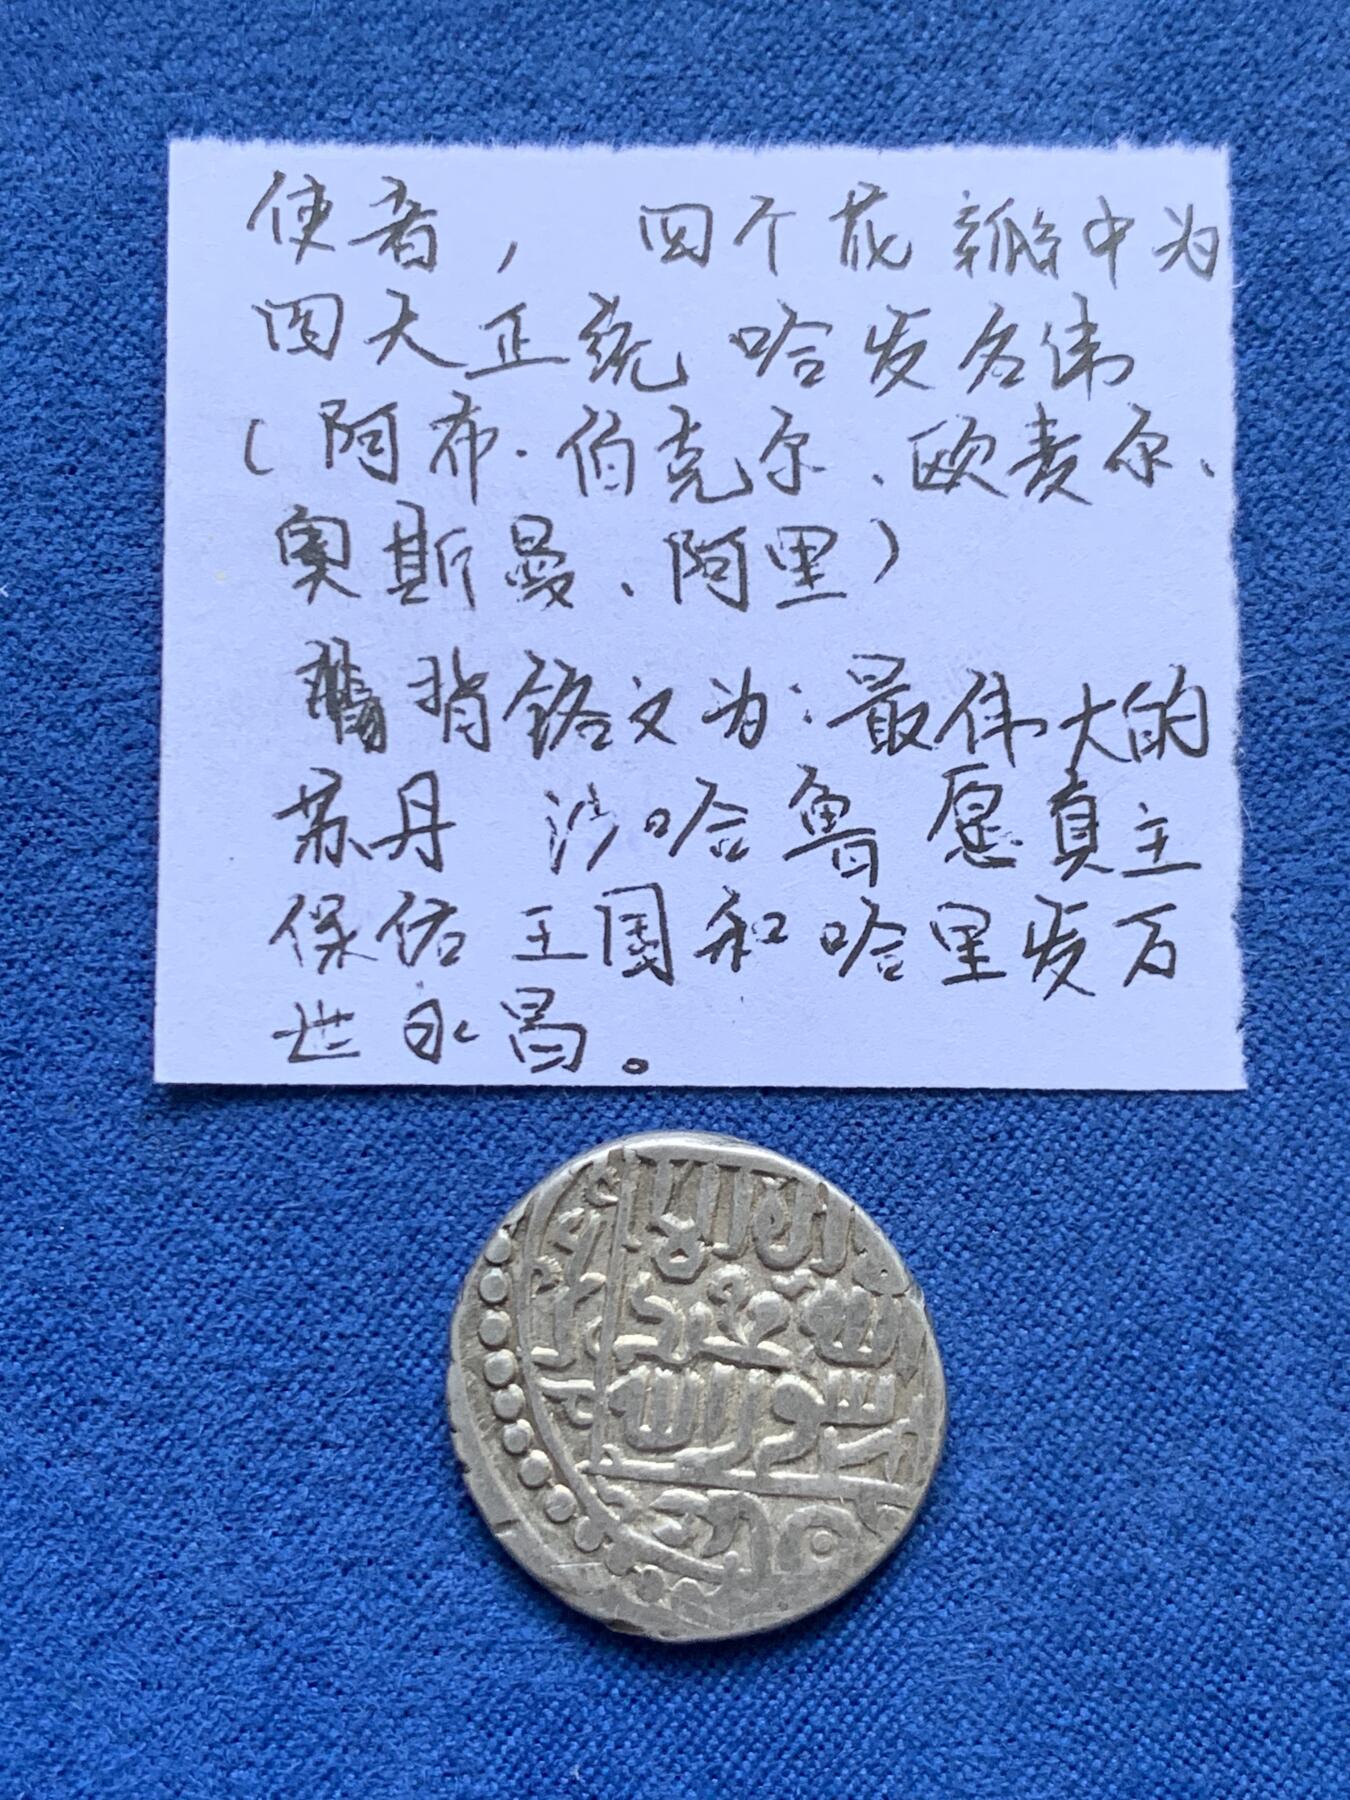 使者， 四个花瓣中为
四大正统 哈发名讳
（阿布·伯克尔、欧麦尔、
奥斯曼、阿里）
背铭文为：最伟大的
苏丹 沙哈鲁 愿真主
保佑 王国和哈里发万
世永昌。
لا اله الا
الله محمد
رسول الله